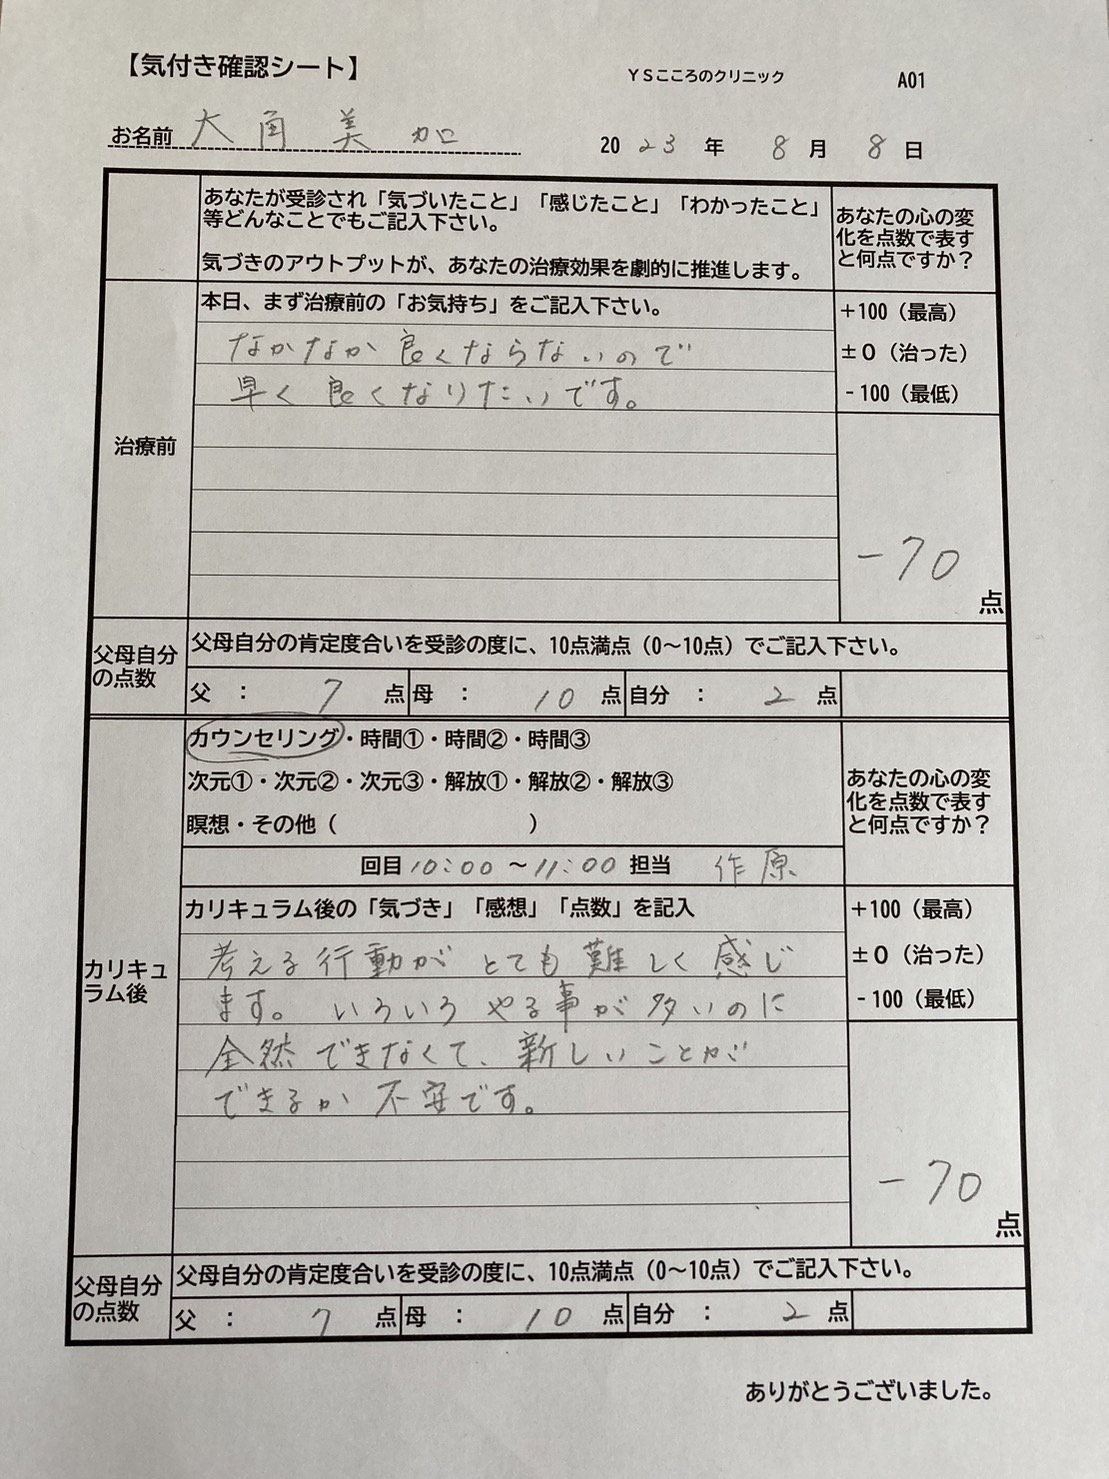 【気付き確認シート】
YSこころのクリニック
A01
お名前 大角 美加
2023年 8月 8日
あなたが受診され「気づいたこと」「感じたこと」「わかったこと」
等どんなことでもご記入下さい。
気づきのアウトプットが、あなたの治療効果を劇的に推進します。
あなたの心の変
化を点数で表す
と何点ですか？
治療前
本日、まず治療前の「お気持ち」をご記入下さい。
なかなか良くならないので
早く良くなりたいです。
+100（最高）
±0（治った）
-100（最低）
-70
点
父母自分
の点数
父母自分の肯定度合いを受診の度に、10点満点（0～10点）でご記入下さい。
父 ： 7 点 母 ： 10 点 自分 ： 2 点
カリキュ
ラム後
カウンセリング・時間①・時間②・時間③
次元①・次元②・次元③・解放①・解放②・解放③
瞑想・その他（ ）
回目 10:00 ～ 11:00 担当 作原
あなたの心の変
化を点数で表す
と何点ですか？
カリキュラム後の「気づき」「感想」「点数」を記入
考える行動がとても難しく感じ
ます。いろいろやる事が多いのに
全然できなくて、新しいことが
できるか不安です。
+100（最高）
±0（治った）
-100（最低）
-70
点
父母自分
の点数
父母自分の肯定度合いを受診の度に、10点満点（0～10点）でご記入下さい。
父 ： 7 点 母 ： 10 点 自分 ： 2 点
ありがとうございました。